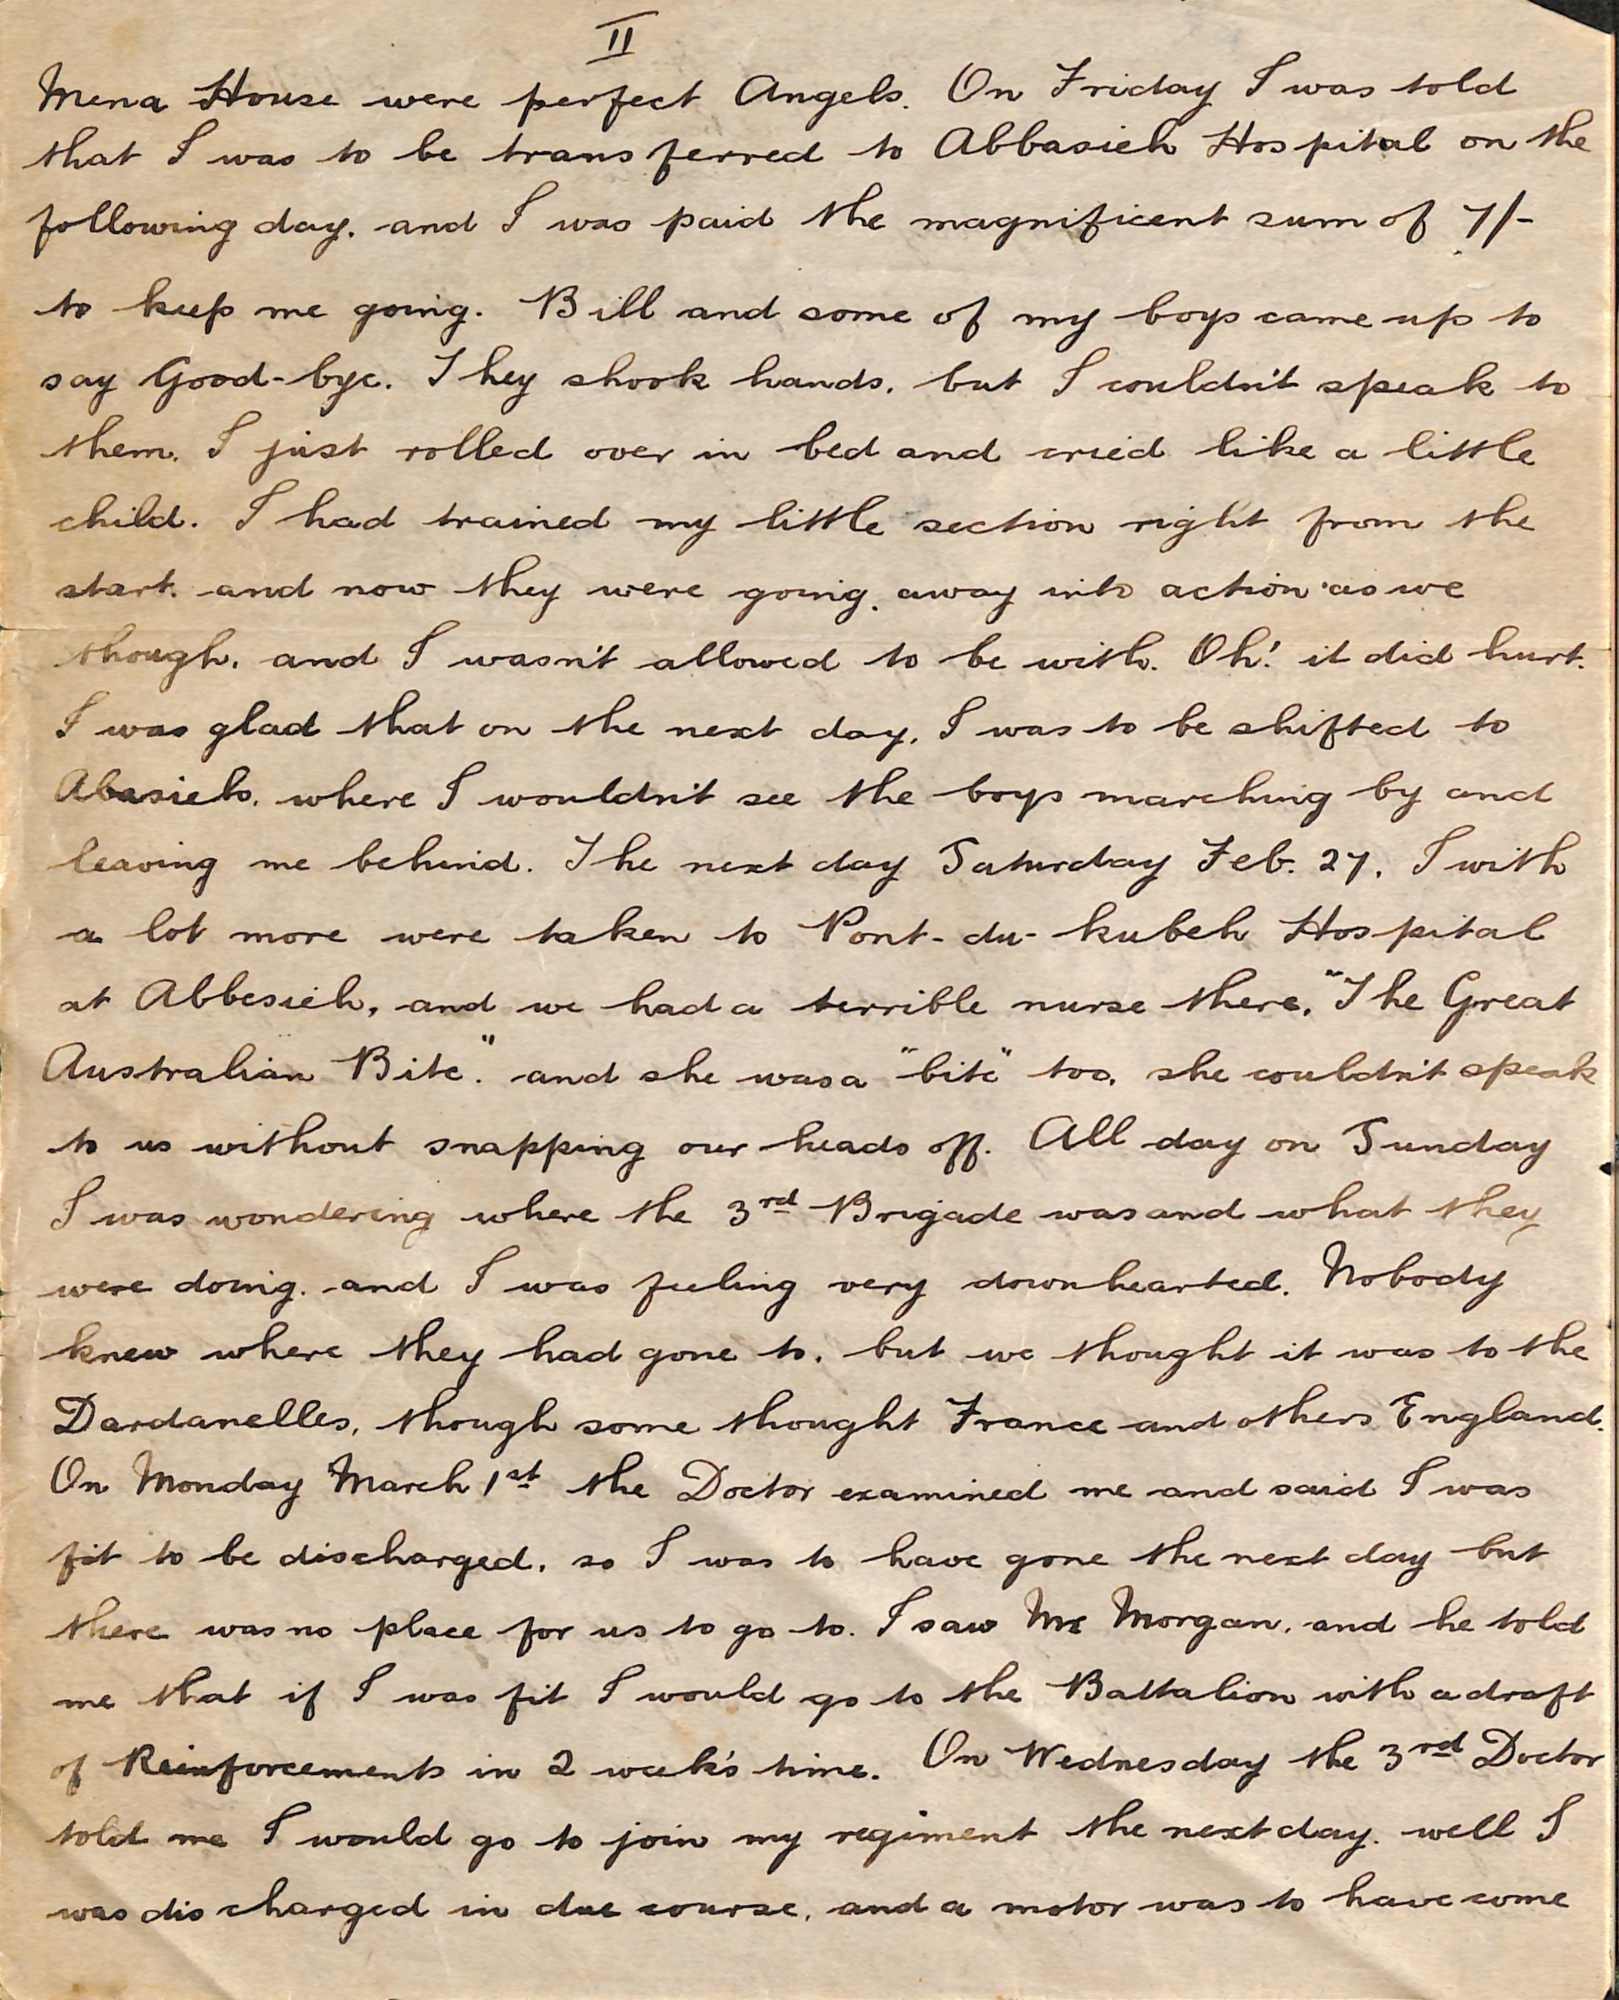 II
Mena House were perfect Angels. On Friday I was told
that I was to be transferred to Abbasieh Hospital on the
following day. and I was paid the magnificent sum of 7/-
to keep me going. Bill and some of my boys came up to
say Good-bye. They shook hands, but I couldn't speak to
them. I just rolled over in bed and cried like a little
child. I had trained my little section right from the
start. and now they were going. away into action as we
though, and I wasn't allowed to be with. Oh! it did hurt.
I was glad that on the next day, I was to be shifted to
Abasieh. where I wouldn't see the boys marching by and
leaving me behind. The next day Saturday Feb. 27, I with
a lot more were taken to Pont-du-kubeh Hospital
at Abbesieh, and we had a terrible nurse there, "The Great
Australian Bite." and she was a "bite" too, she couldn't speak
to us without snapping our heads off. All day on Sunday
I was wondering where the 3rd Brigade was and what they
were doing. and I was feeling very downhearted. Nobody
knew where they had gone to, but we thought it was to the
Dardanelles, though some thought France and others England.
On Monday March 1st the Doctor examined me and said I was
fit to be discharged, so I was to have gone the next day but
there was no place for us to go to. I saw Mr Morgan, and he told
me that if I was fit I would go to the Battalion with a draft
of Reinforcements in 2 week's time. On Wednesday the 3rd Doctor
told me I would go to join my regiment the next day. well I
was discharged in due course, and a motor was to have come